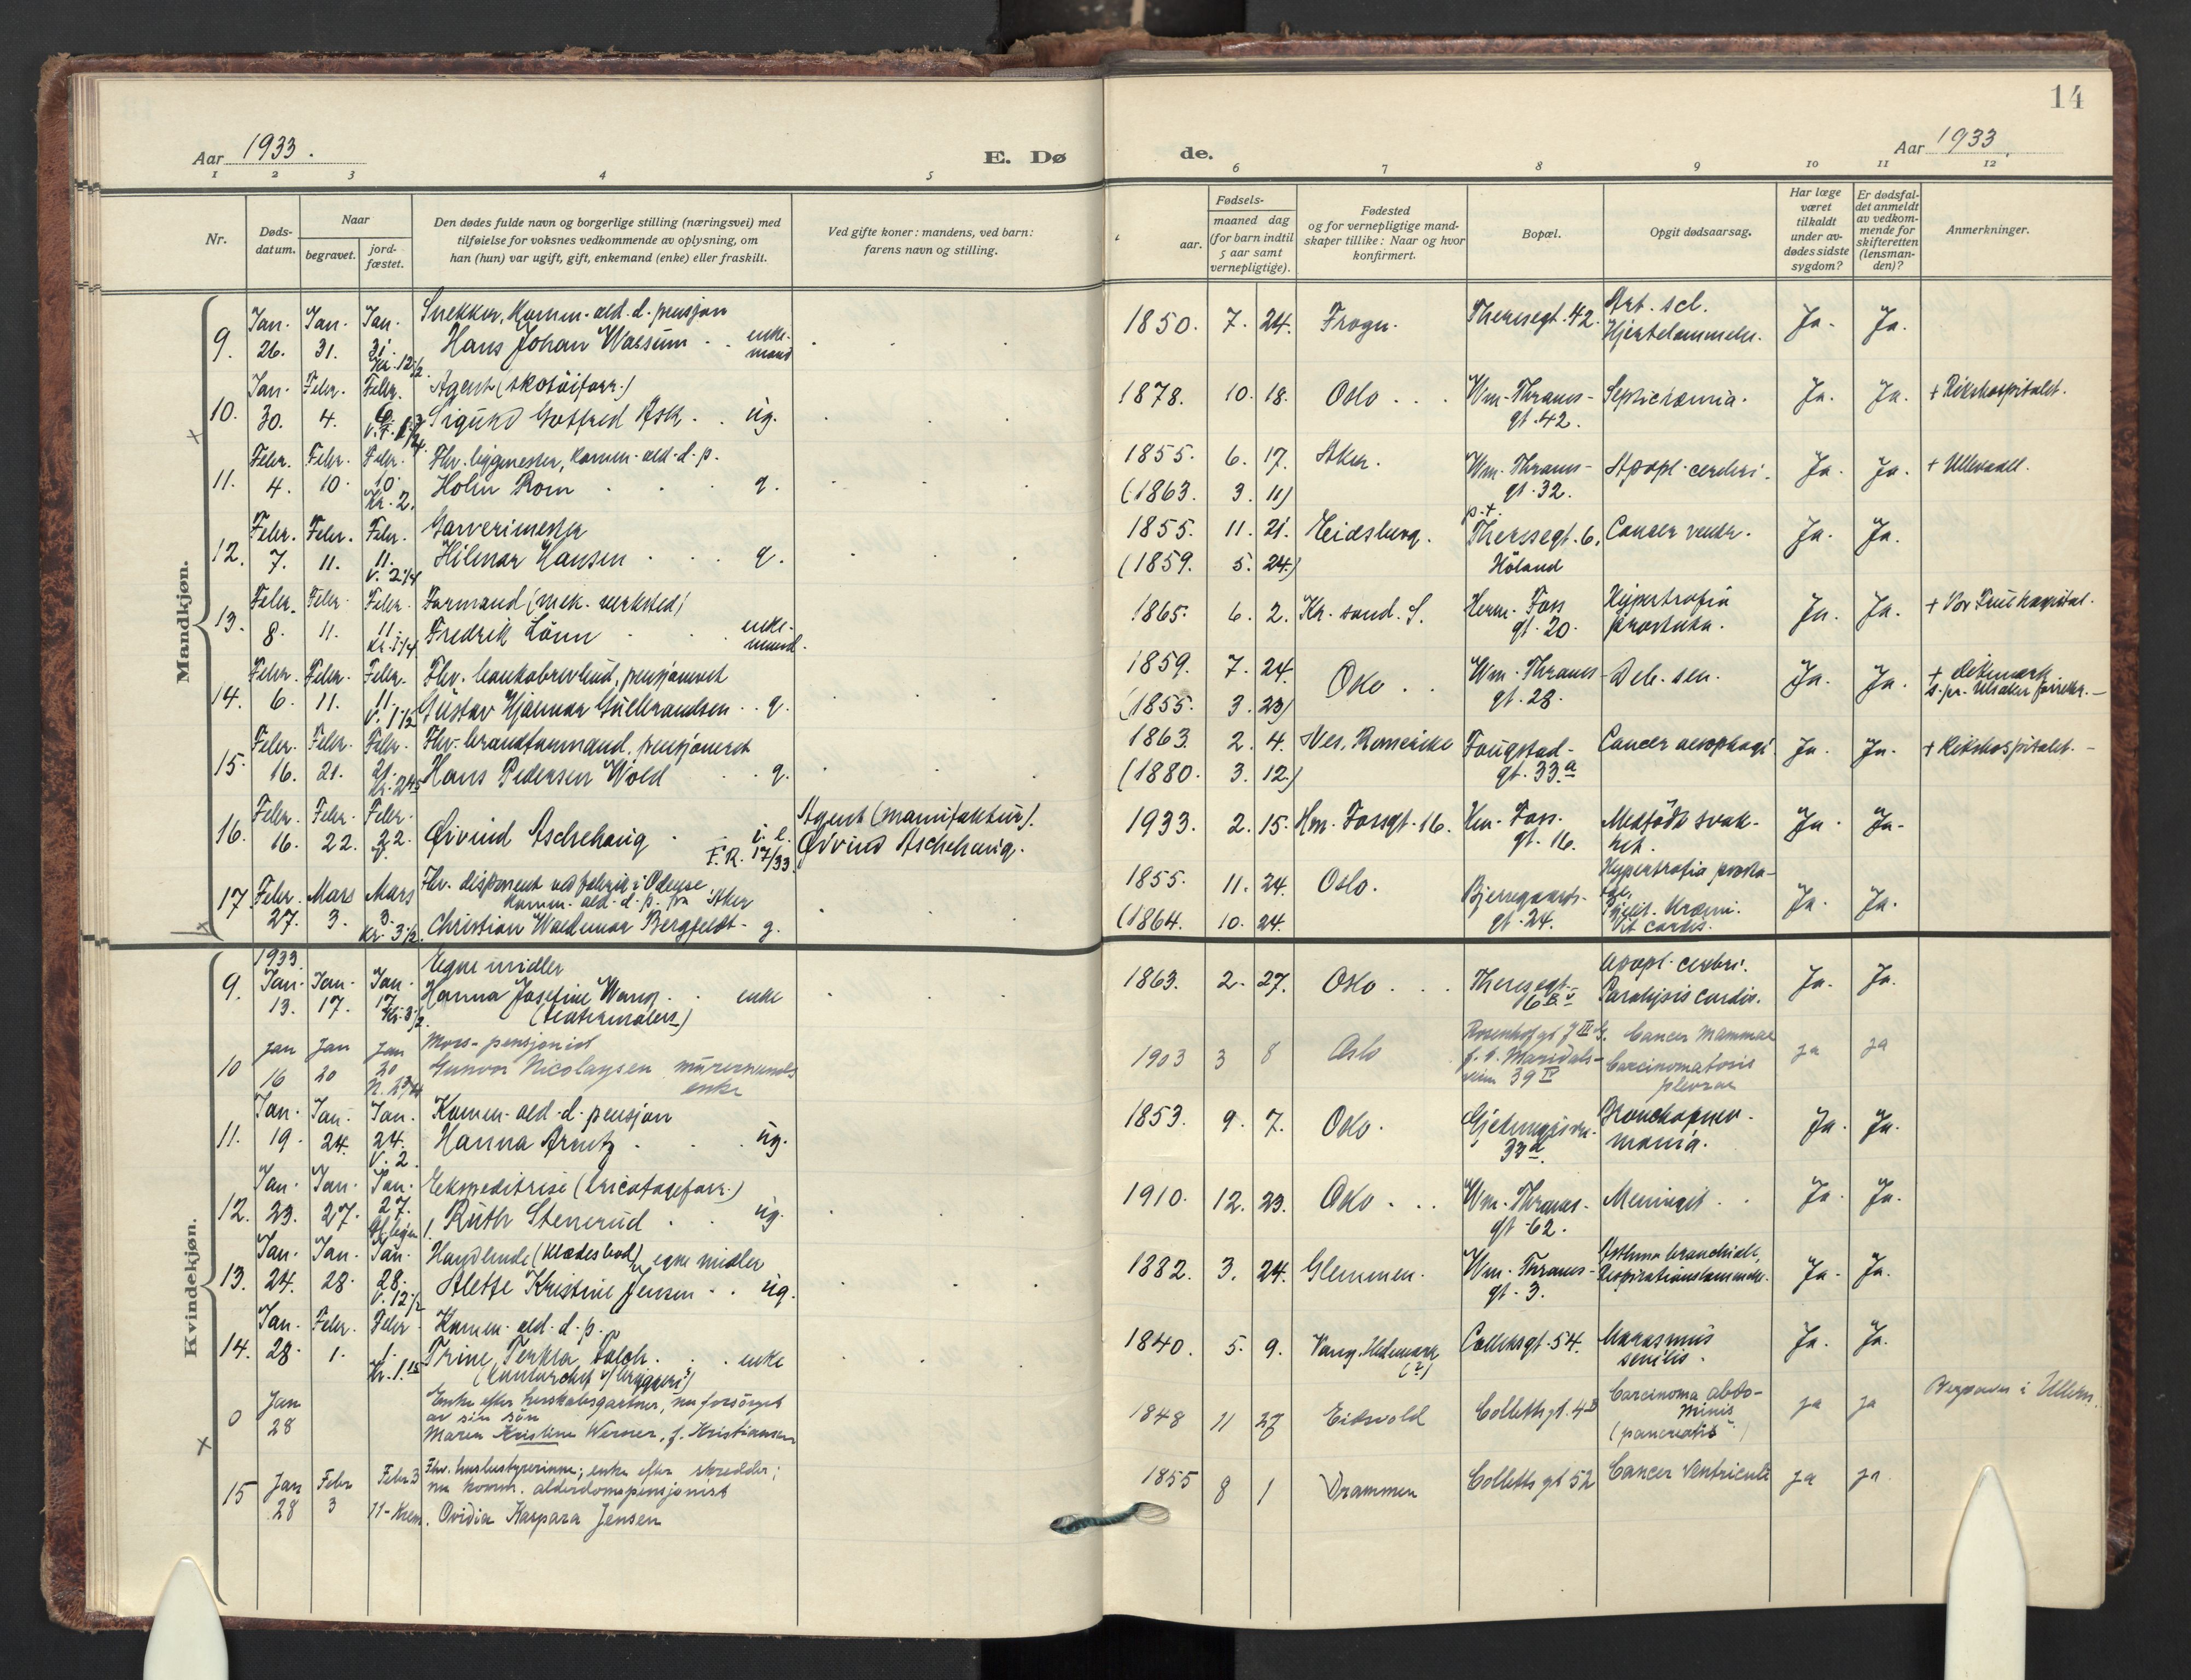 14
Aar 1933.
E. Dø
de.
Aar 1933.
1 2 3 4 5 6 7 8 9 10 11 12
Nr.
Døds-
datum.
Naar
begravet.
jord-
fæstet.
Den dødes fulde navn og borgerlige stilling (næringsvei) med
tilføielse for voksnes vedkommende av oplysning, om
han (hun) var ugift, gift, enkemand (enke) eller fraskilt.
Ved gifte koner: mandens, ved barn:
farens navn og stilling.
Fødsels-
aar.
maaned dag
(for barn indtil
5 aar samt
vernepligtige).
Fødested
og for vernepligtige mand-
skaper tillike: Naar og hvor
konfirmert.
Bopæl.
Opgit dødsaarsag.
Har læge
været
tilkaldt
under av-
dødes sidste
sygdom?
Er dødsfal-
det anmeldt
av vedkom-
mende for
skifteretten
(lensman-
den)?
Anmerkninger.
Mandkjøn.
9. Jan. 26. Jan. 31. Jan. 31. Kr. 12½
Snekker, Komm. ald. d. pensjon
Hans Johan Waesum enke-
mand
1850. 7. 24. Frogn. Theresegt. 42. Art. scl.
Hjertelammelse. Ja. Ja.
10. Jan. 30. Febr. 4. Febr.
Agent (skotöiforr.)
Sigurd Gotfred Ask ug.
1878. 10. 18. Oslo Wm. Thranes-
gt. 42. Septichæmia. Ja. Ja. + Rikshospitalet.
11. Febr. 4. Febr. 10. Febr. 10. Kr. 2.
Fhv. byggmester, Komm. ald. d. p.
Holm Rom g.
1855. 6. 17. Aker. Wm. Thranes-
(1863. 3. 11) gt. 32. Apopl. cerebri. Ja. Ja. + Ullevaal.
12. Febr. 7. Febr. 11. Febr. 11. V. 2¼
Garverimester
Hilmar Hansen g.
1855. 11. 21. Eidsberg. p.t.
Theresegt. 6. Cancer ventr. Ja. Ja.
(1859. 5. 24.) Höland
13. Febr. 8. Febr. 11. Febr. 11. Kr. 1¼
Formand (mek. verksted)
Fredrik Lönn enke-
mand.
1865. 6. 2. Kr. sand. S. Herm. Foss
gt. 20. Hypertrofia
prostata. Ja. Ja. + Vor Frue hospital.
14. Febr. 6. Febr. 11. Febr. 11. V. 1½
Fhv. bankobrevbud, pensjonert
Gustav Hjalmar Gulbrandsen g.
1859. 7. 24. Oslo Wm. Thranes-
(1855. 3. 23) gt. 28. Deb. sen. Ja. Ja.
15. Febr. 16. Febr. 21. Febr. 21.
Fhv. brandformand, pensjonert
Hans Pedersen Wold g.
1863. 2. 4. Nes. Romerike Fougstad-
(1880. 3. 12.) gt. 33.a Cancer aesophagi Ja. Ja. + Rikshospitalet.
16. Febr. 16. Febr. 22. Febr. 22. V.
Øivind Aschehoug
F.R. 17/33.
Agent (manufaktur).
Øivind Aschehoug.
1933. 2. 15. Hm. Fossgt. 16. Hm. Foss-
gt. 16. Medfödt svak-
het. Ja. Ja.
17 Febr. 27. Mars 3. Mars 3. Kr. 3½.
Fhv. disponent ved fabrik i Odense
komm. ald. d. p. fra Aker
Christian Waldemar Bergfeldt g.
1855. 11. 24. Oslo. Bjerregaards-
(1864. 10. 24. gt. 24. Hypertrofia prosta-
tae.
Pyelit. Uræmi.
Vit. cordis. Ja. Ja.
Kvindekjøn.
1933.
9. Jan. 13. Jan. 17. Jan. 17.
Egne midler
Hanna Josefine Wang enke
(teatermalers)
1863. 2. 27. Oslo Theresegt.
16 B V Apopl. cerebri.
Paralysis cordis. Ja. Ja.
10 Jan 16 Jan 20 Jan 20
Mors-pensjonist
Gunvor Nicolaysen murermands
enke
1903 3 8 Oslo Rosenhofgt 7 III
f. t. Maridals-
veien 39 IV Cancer Mammae
Carcinomatosis
pleurae ja ja
11. Jan. 19. Jan. 24. Jan. 24. V. 2.
Komm. ald. d. pensjon
Hanna Arentz ug.
1853. 9. 7. Oslo. Bronchopneu-
monia. Ja. Ja.
12. Jan. 23. Jan. 27. Jan. 27.
Ekspeditrise (tricotageforr.)
Ruth Stenerud ug.
1910. 12. 23. Oslo Wm. Thranes-
gt. 62. Meningit. Ja. Ja.
13. Jan. 24. Jan. 28. Jan. 28. V. 12½
Handlende (klædesbod), egne midler
Alette Kristine Jensen ug.
1882. 3. 24. Glemmen. Wm. Thranes-
gt. 3. Asthma bronchiale,
Respirationslammelse. Ja. Ja.
14. Jan. 28. Febr. 1. Febr. 1. Kr. 1.15
Komm. ald. d. p.
Trine Terkla Falch enke
(kontorchef v/ bryggeri)
1840. 5. 9. Vang. Hedemark
(?) Collettsgt. 54. Marasmus
senilis. Ja. Ja.
0 Jan 28
Enke efter herskabsgartner, nu forsörget
av sin sön
Maren Kristine Werner, f. Kristiansen
1848 11 27 Eidsvold Colletts gt. 4 Carcinoma abdo-
minis
(pancreatis) ja ja i Ullern.
15 Jan 28 Febr 3 Febr 3 11-Krem.
Fhv. husbestyrerinne; enke efter skredder;
nu komm. alderdomspensjonist
Ovidia Kaspara Jensen
1855 8 1 Drammen Colletts gt 52 Cancer Ventriculi ja ja